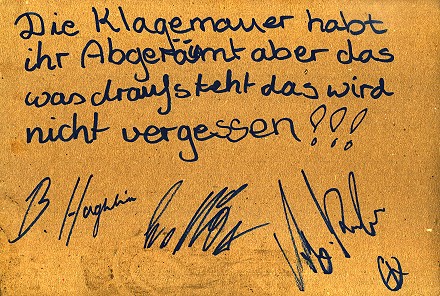 Die Klagemauer habt
ihr Abgeräumt aber das
was draufsteht das wird
nicht vergessen!!!
B.